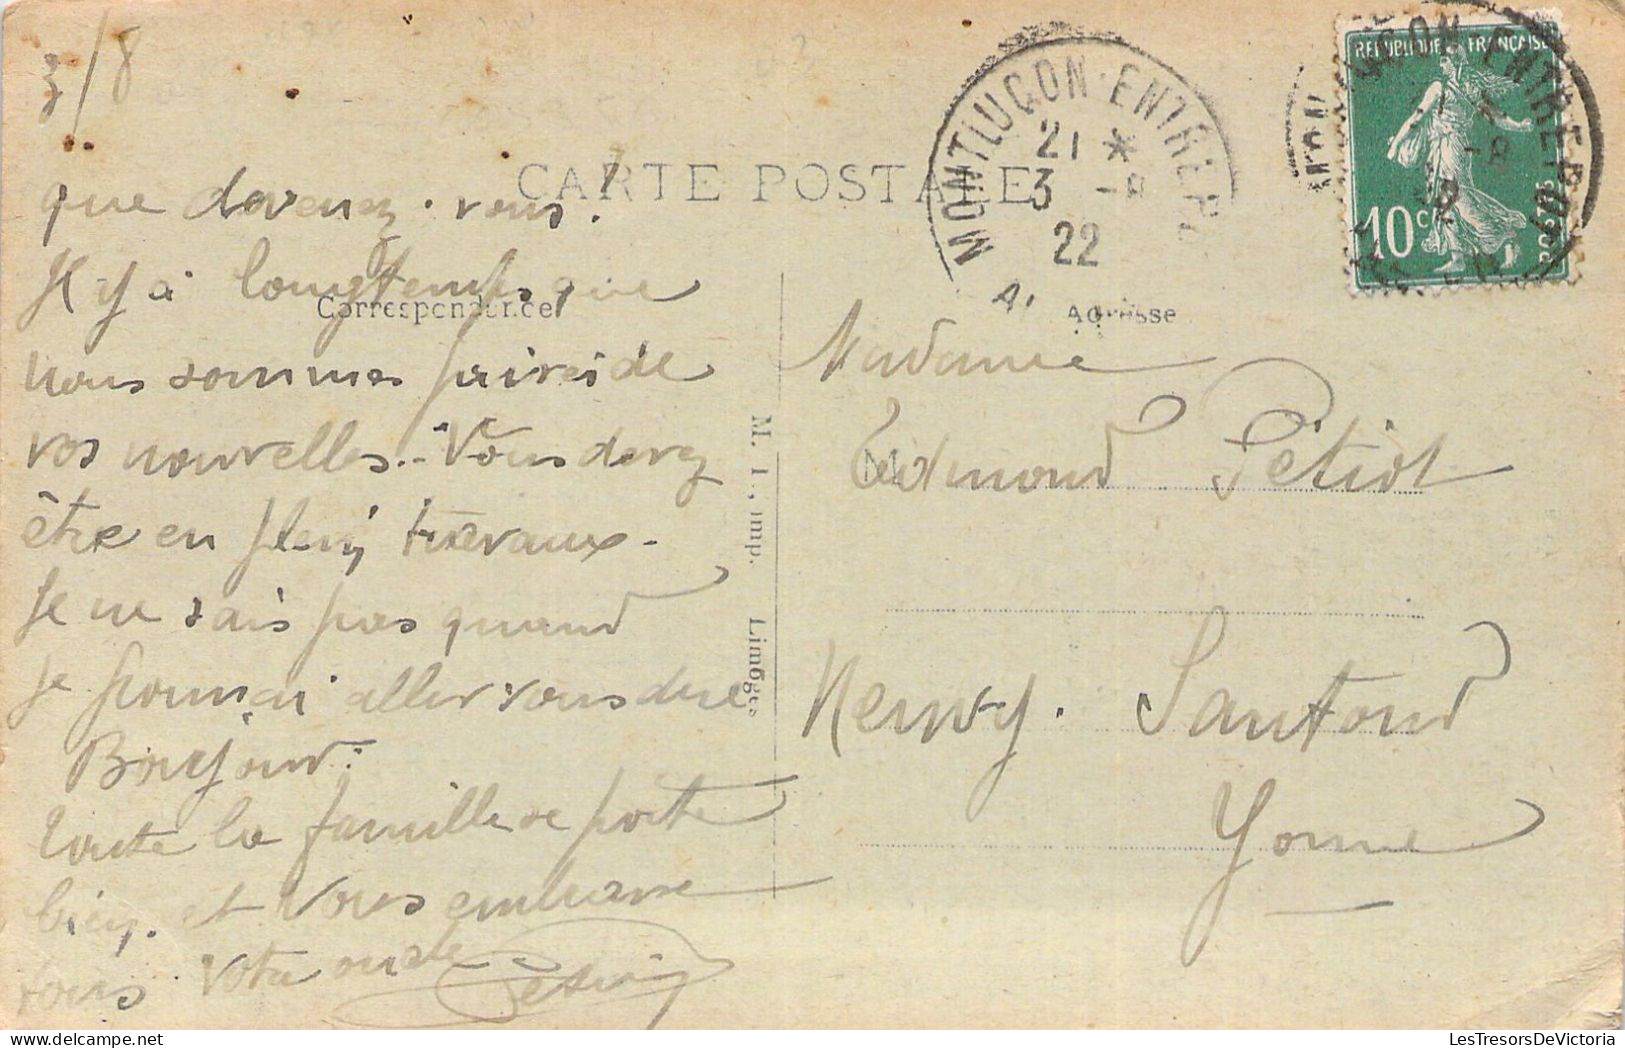 3/8
CARTE POSTALE
que devenez-vous!
Il y a longtemps que
Correspondance
nous sommes privés de
vos nouvelles.- Vous devez
être en plein travaux-
Je ne sais pas quand
je pourrai aller vous dire
Bonjour.
toute la famille se porte
bien. et vous embrasse
tous Votre oncle
M. T., imp. Limoges
MONTLUÇON-ENTREP
21 *
3 -8
22
Adresse
Madame
Edmond Petiot
Neuvy. Sautour
Yonne
REPUBLIQUE FRANÇAISE
10c
POSTES
LesTresorsDeVictoria